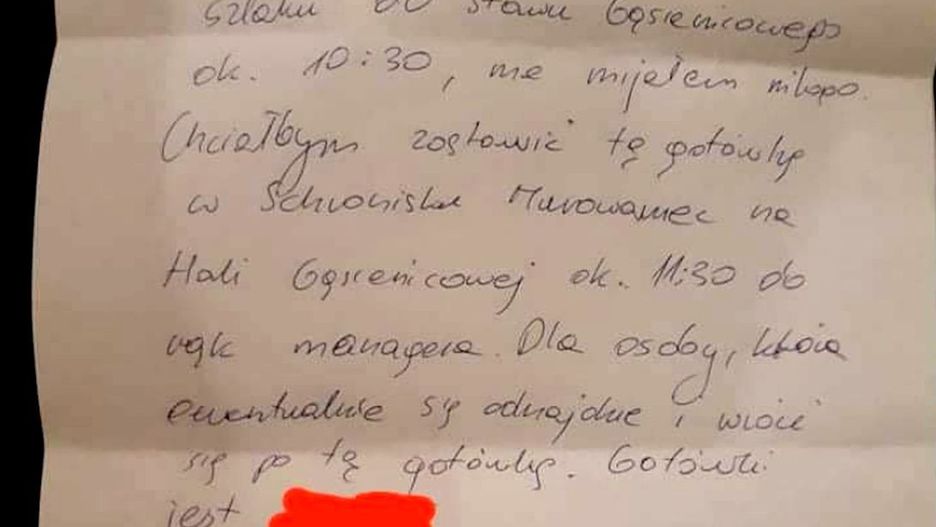 szlaku do stawu Gąsienicowego
ok. 10:30, nie mijałem nikogo.
Chciałbym zostawić tę gotówkę
w Schronisku Murowaniec na
Hali Gąsienicowej ok. 11:30 do
rąk managera. Dla osoby, która
ewentualnie się odnajdzie i wróci
się po tę gotówkę. Gotówki
jest